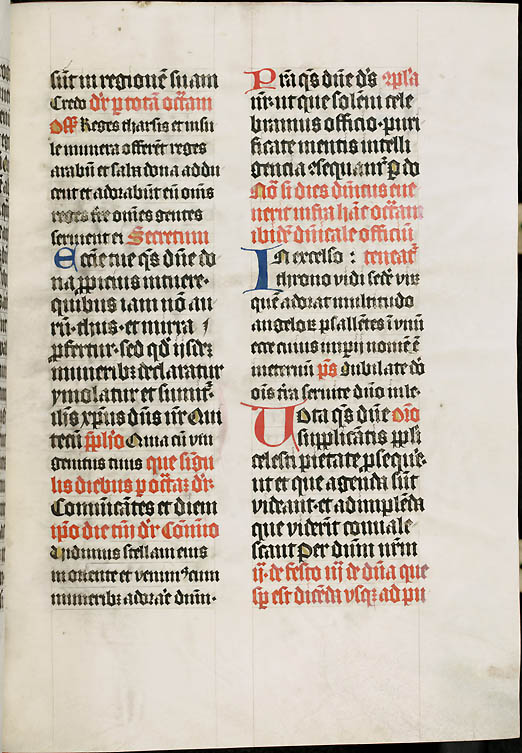 sūt in regionē suam
Credo dr̄ p totā octām
Off Reges tharsis et insu
le munera offerēt reges
arabū et saba dona addu
cent et adorabūt eū om̄s
reges tr̄e om̄es gentes
servient ei Secretum
Eccīe tue qs̄ dn̄e do
na ppicius intuere·
quibus iam nō au
rū·thus·et mirra
pfertur·sed qd̄ ijsdeȝ
muneribȝ declaratur
ymolatur et sumit̄·
ihs xp̄us dn̄s nr̄ Qui
tecū Quia cū uni
genitus tuus que singu
lis diebus p octāȝ dr̄
Com̄unicātes et diem
ip̄o die tm̄ dr̄ Cōmīo
Vidimus stellam eius
in oriente et venim⁹ cum
muneribȝ adorar̄e dn̄m·
Pr̄a qs̄ dn̄e ds̄
nr̄·ut que solēni cele
bramus officio·puri
ficate mentis intelli
gencia 9sequam̄ p do
Nō si dies dn̄icus eve
nerit infra hāc octām
ibid̄ dn̄icale officiū
In excelso : teneat̄
throno vidi sedēr̄ virȝ
quē adorat multitudo
angeloꝝ psallētes ī unū
ecce cuius impij nomē ē
in eternū ps̄ Iubilate dō
oīs tr̄a servite dn̄o in le·
Vota qs̄ dn̄e oīo
supplicātis ppli
celesti pietate pseqr̄e·
ut et que agenda sūt
videant·et ad implēda
que viderīt convale
scant per dn̄m nr̄m
ij·de festo iij de dn̄a que
sp est dicēda usqȝ ad pu